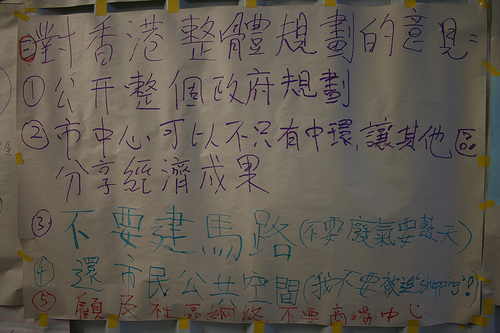 ㊁對香港整體規劃的意見：
① 公开整個政府規劃
② 市中心可以不只有中環，讓其他區
分享經濟成果
③ 不要建馬路(不要廢氣要藍天)
④ 還市民公共空間(我不要被迫"shopping"!)
⑤ 顧及社區網絡 不要商場中心